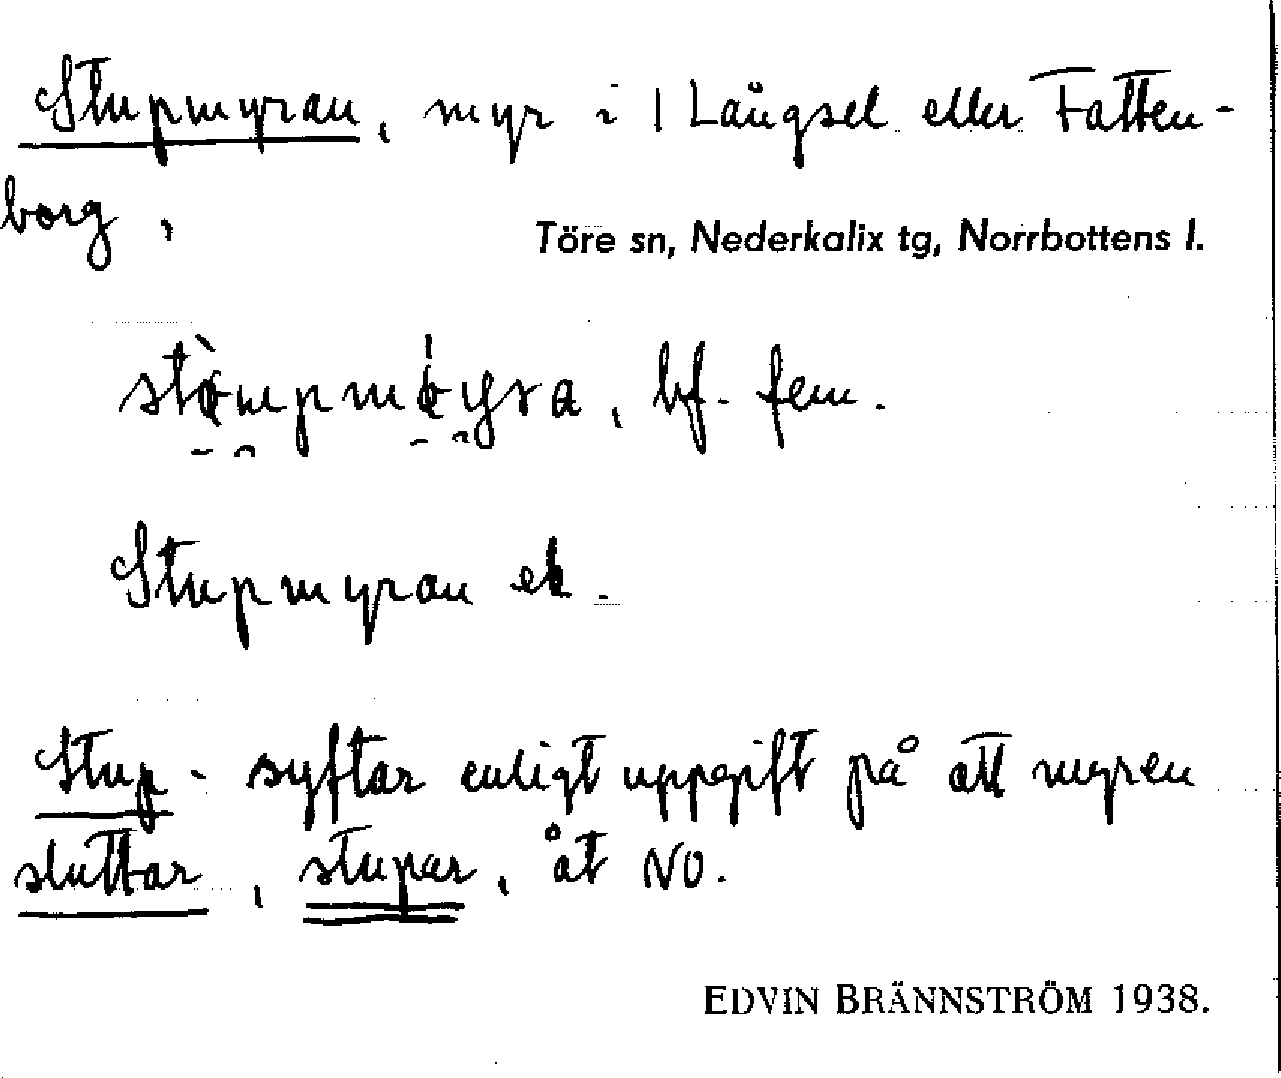 Stupmyran, myr i l Långsel eller Fatten-
borg,
Töre sn, Nederkalix tg, Norrbottens l.
bf. fem.
Stupmyran ek.
Stup- syftar enligt uppgift på att myren
sluttar, stupar, åt NO.
EDVIN BRÄNNSTRÖM 1938.